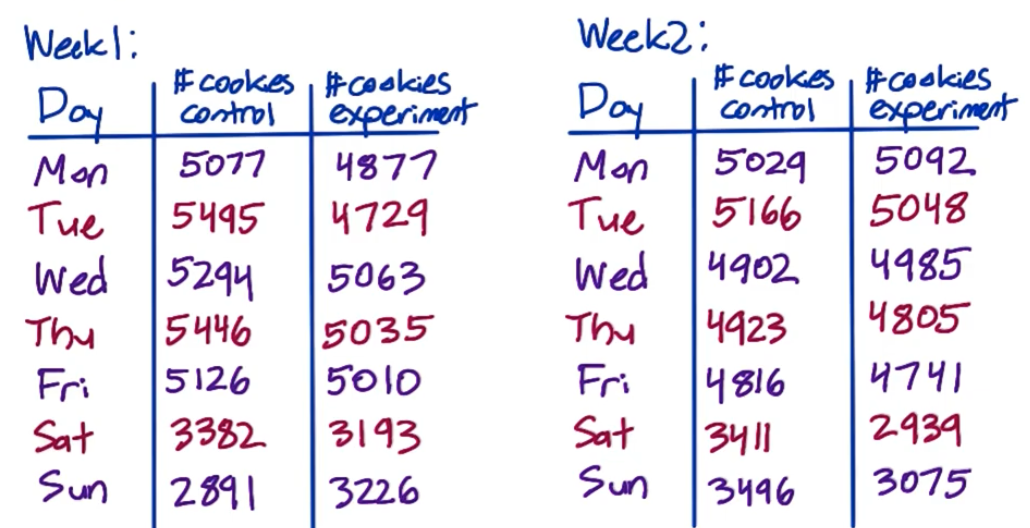 Week1:
Day #cookies control #cookies experiment
Mon 5077 4877
Tue 5495 4729
Wed 5294 5063
Thu 5446 5035
Fri 5126 5010
Sat 3382 3193
Sun 2891 3226
Week2:
Day #cookies control #cookies experiment
Mon 5029 5092
Tue 5166 5048
Wed 4902 4985
Thu 4923 4805
Fri 4816 4741
Sat 3411 2939
Sun 3496 3075